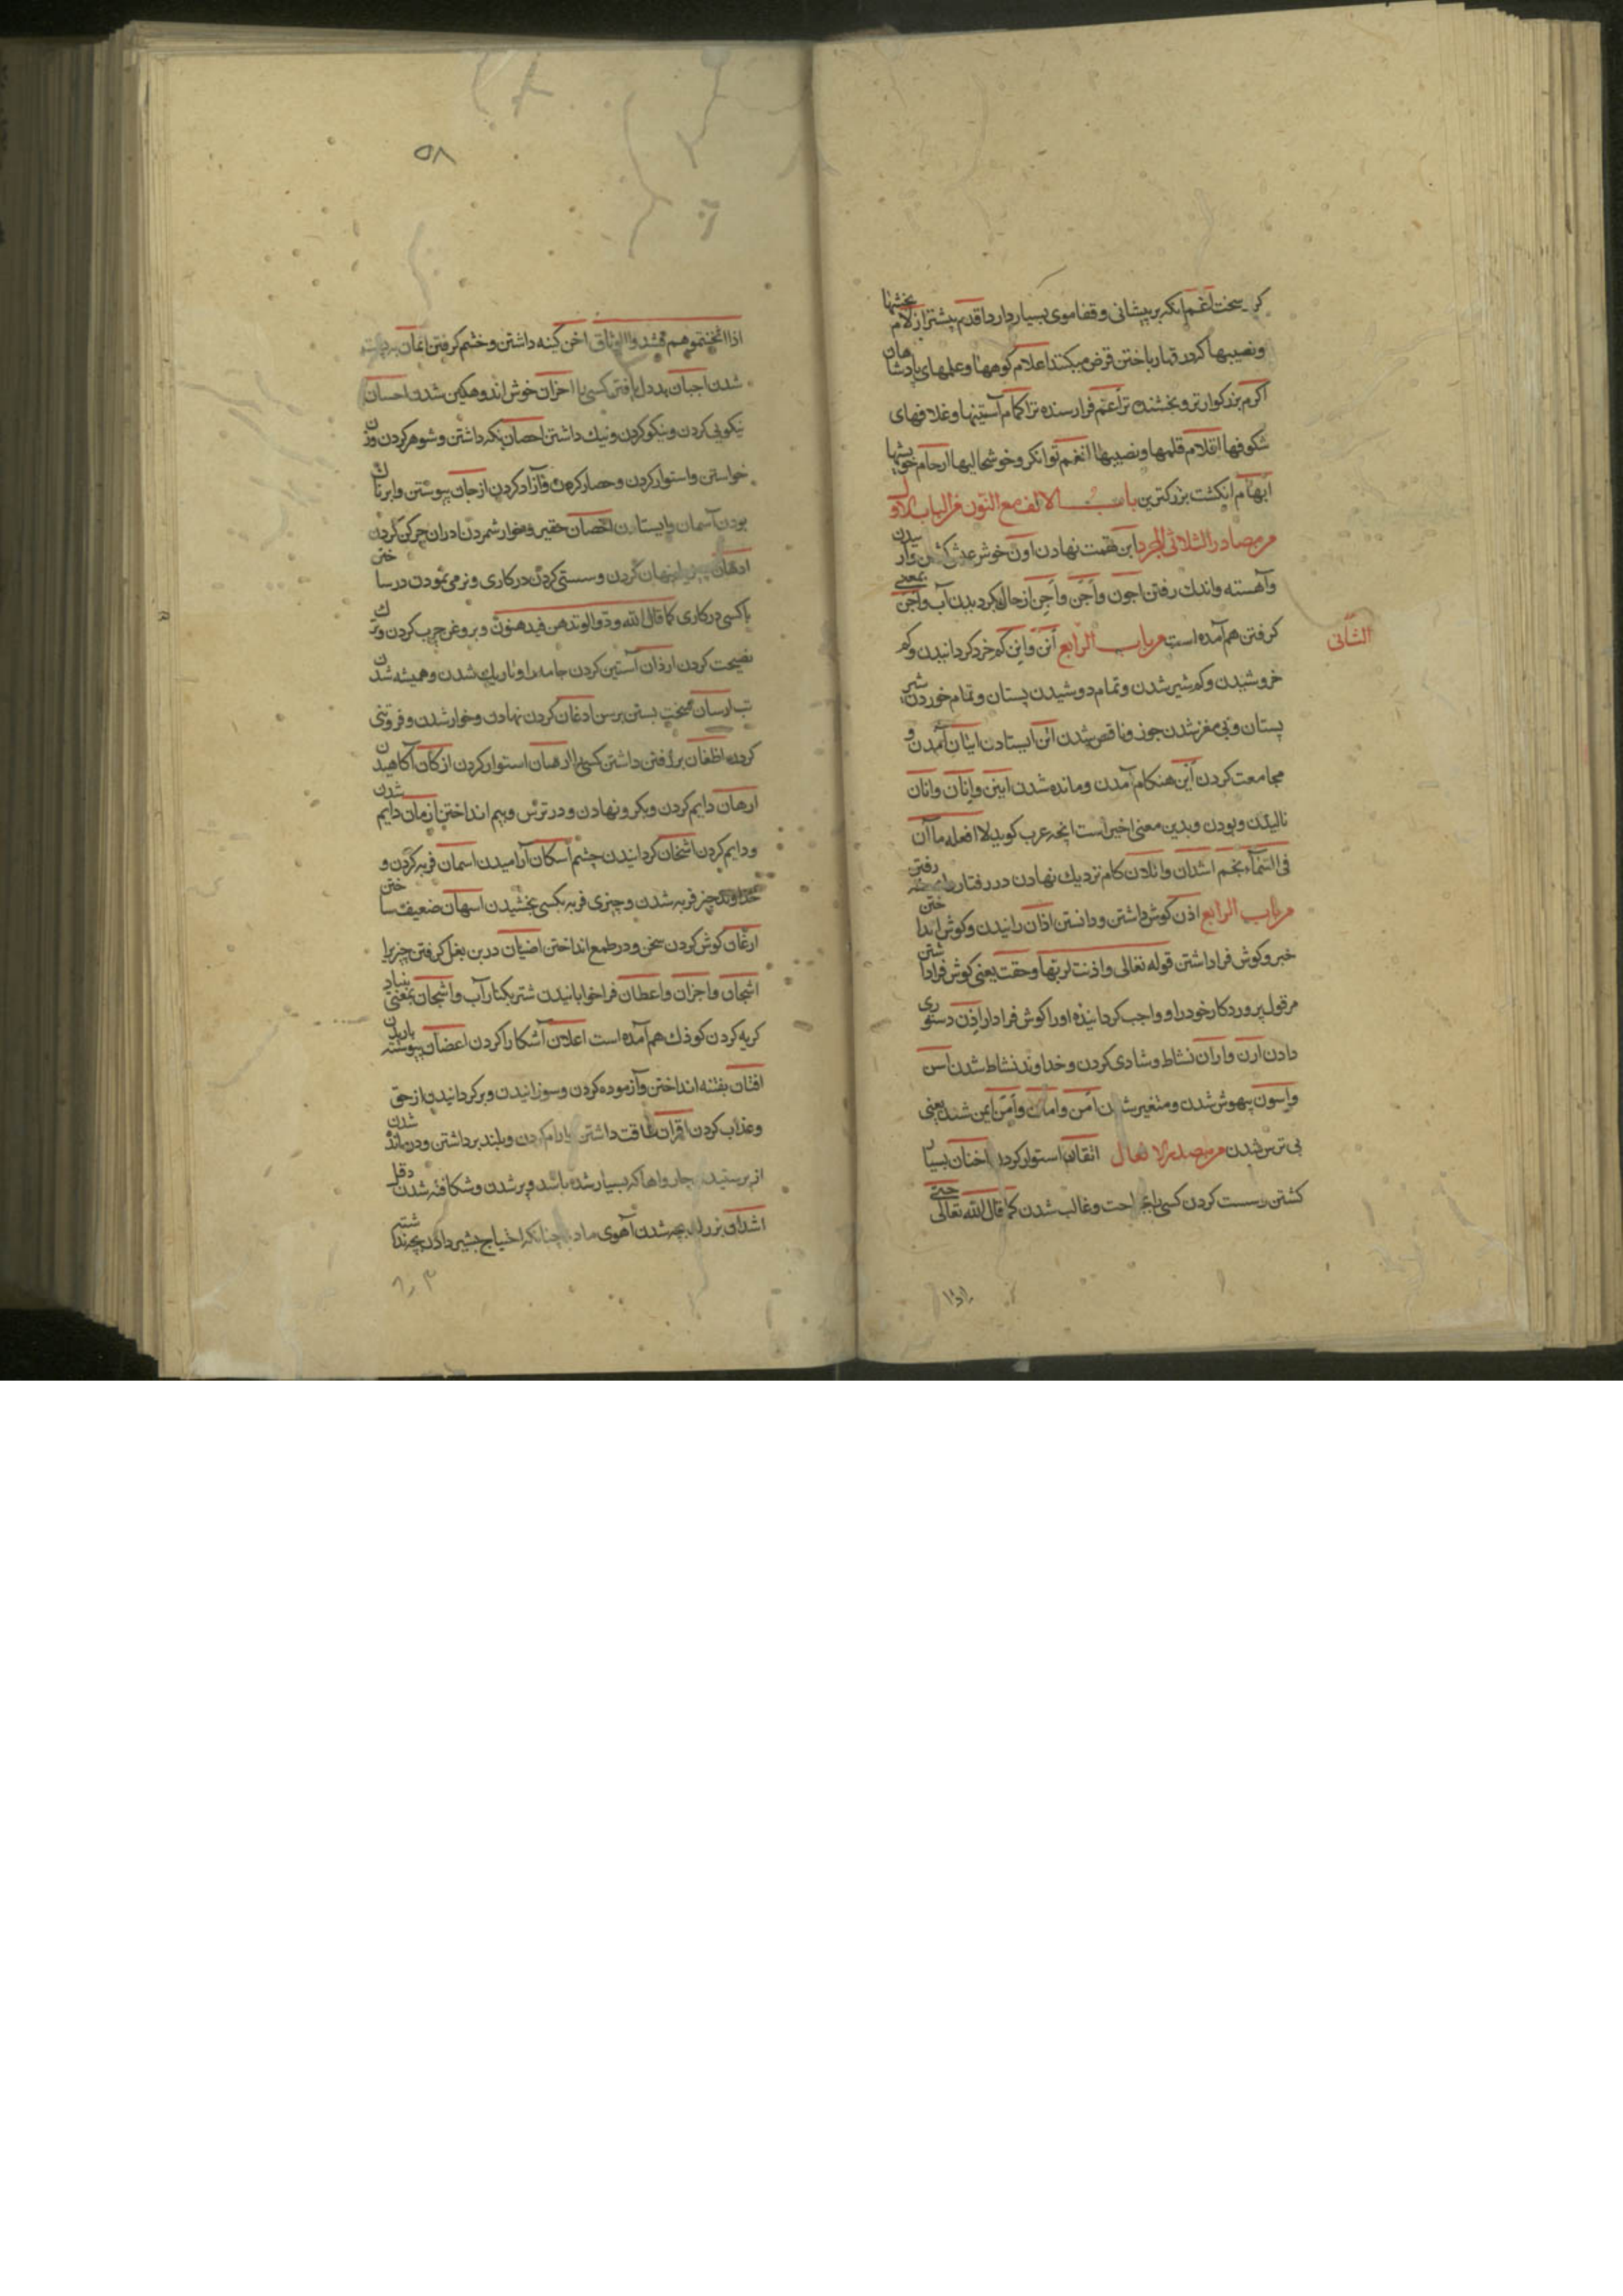 سخت اغم انکه بر پیشانی و قفا موی بسیار دارد اقدم پیشتر ازلام بخشها
و نصیبها که در قمار باختن قرض میکنند اعلام کوهها و علمهای پادشاهان
اکرم بزرکوارتر و بخشنده تر اعم فرا رسنده تر اکمام آستینها و غلافهای
شکوفها اقلام قلمها و نصیبها انغم توانکر و خوشحالیها ارحام خویشها
ابهام انکشت بزرکترین باب الالف مع النون فی الباب الاول
من مصادر الثلاثی المجرد ابن تهمت نهادن اون خوش عیش
و آهسته و اندك رفتن اجون و اجن و اجن از حال بگردیدن آب و اجن بمعنی
الثانی
کرفتن هم آمده است من باب الرابع انن و این کم خرد کردانیدن و کم
خروشیدن و کم شیر شدن و تمام دوشیدن پستان و تمام خوردن شیر
پستان و بی مغز شدن جوز و ناقص شدن اتن ایستادن اتیان آمدن و
مجامعت کردن این هنکام آمدن و مانده شدن انین و انان و انان
نالیدن و بودن و بدین معنی اخیر است انچه عرب کوید لا افعله ما ان
فی السماء نجم اشدان و اتلان کام نزدیك نهادن در رفتار رفتن
من باب الرابع اذن کوش داشتن و دانستن اذان رانیدن و کوش انداختن
خبر و کوش فرا داشتن قوله تعالی و اذنت لربها و حقت یعنی کوش فرا داشتن
مر قول پروردکار خود را و واجب کردانیده او را کوش فرا دار اذن دستوری
دادن ارن و اران نشاط و شادی کردن و خداوند نشاط شدن اسن
و اسون بیهوش شدن و متغیر شدن امن و امان و امن ایمن شدن یعنی
بی ترس شدن من مصدر الافعال اتقان استوار کردن اخنان بسیار
کشتن و سست کردن کسی را بجراحت و غالب شدن کما قال الله تعالی حتی
۵۸
اذا اثخنتموهم فشدوا الوثاق اخن کینه داشتن و خشم کرفتن
شدن اجبان بددل یافتن کسی را احزان خوش اندوهکین شدن احسان
نیکویی کردن و نیکو کردن و نیك داشتن احصان نکه داشتن و شوهر کردن و زن
خواستن و استوار کردن و حصار کردن و آزاد کردن ارجان پیوستن و ابرناك
بودن آسمان و ایستادن حقیر و خوار شمردن ادران چرکن کردن
ادهان پنهان کردن و سستی کردن در کاری و نرمی نمودن در ساختن
با کسی در کاری کما قال الله ودوا لو تدهن فیدهنون و بروغن چرب کردن و ترك
نصیحت کردن اردان آستین کردن جامه را و تاریك شدن و همیشه شدن
تب ارسان سخت بستن برسن ادغان کردن نهادن و خوار شدن و فروتنی
کردن اظعان برفتن داشتن کسی را ارصان استوار کردن ازکان آکاهیدن
ارهان دایم کردن و بکرو نهادن و در ترس و بیم انداختن ازمان دایم شدن
و دایم کردن اسخان کردانیدن چشم اسکان آرامیدن اسمان فربه کردن و
خداوند چیز فربه شدن و چیزی فربه بکسی بخشیدن اسهان ضعیف ساختن
ارغان کوش کردن سخن و در طمع انداختن اضبان در بن بغل کرفتن چیزیرا
اشجان و احزان و اعطان فرا خوابانیدن شتر بکنار آب و اشجان بمعنی بنیاد
کریه کردن کودك هم آمده است اعلان آشکارا کردن اغضان پیوسته باریدن
افتان بفتنه انداختن و آزموده کردن و سوزانیدن و برکردانیدن از حق
و عذاب کردن اقران طاقت داشتن و رام کردن و بلند برداشتن و درمانده شدن
از پرستیدن چارواها که بسیار شده باشد و پر شدن و شکافته شدن دمل
اشدان بزرك بچه شدن آهوی ماده چنانکه احتیاج بشیر دادن بچه نداشته